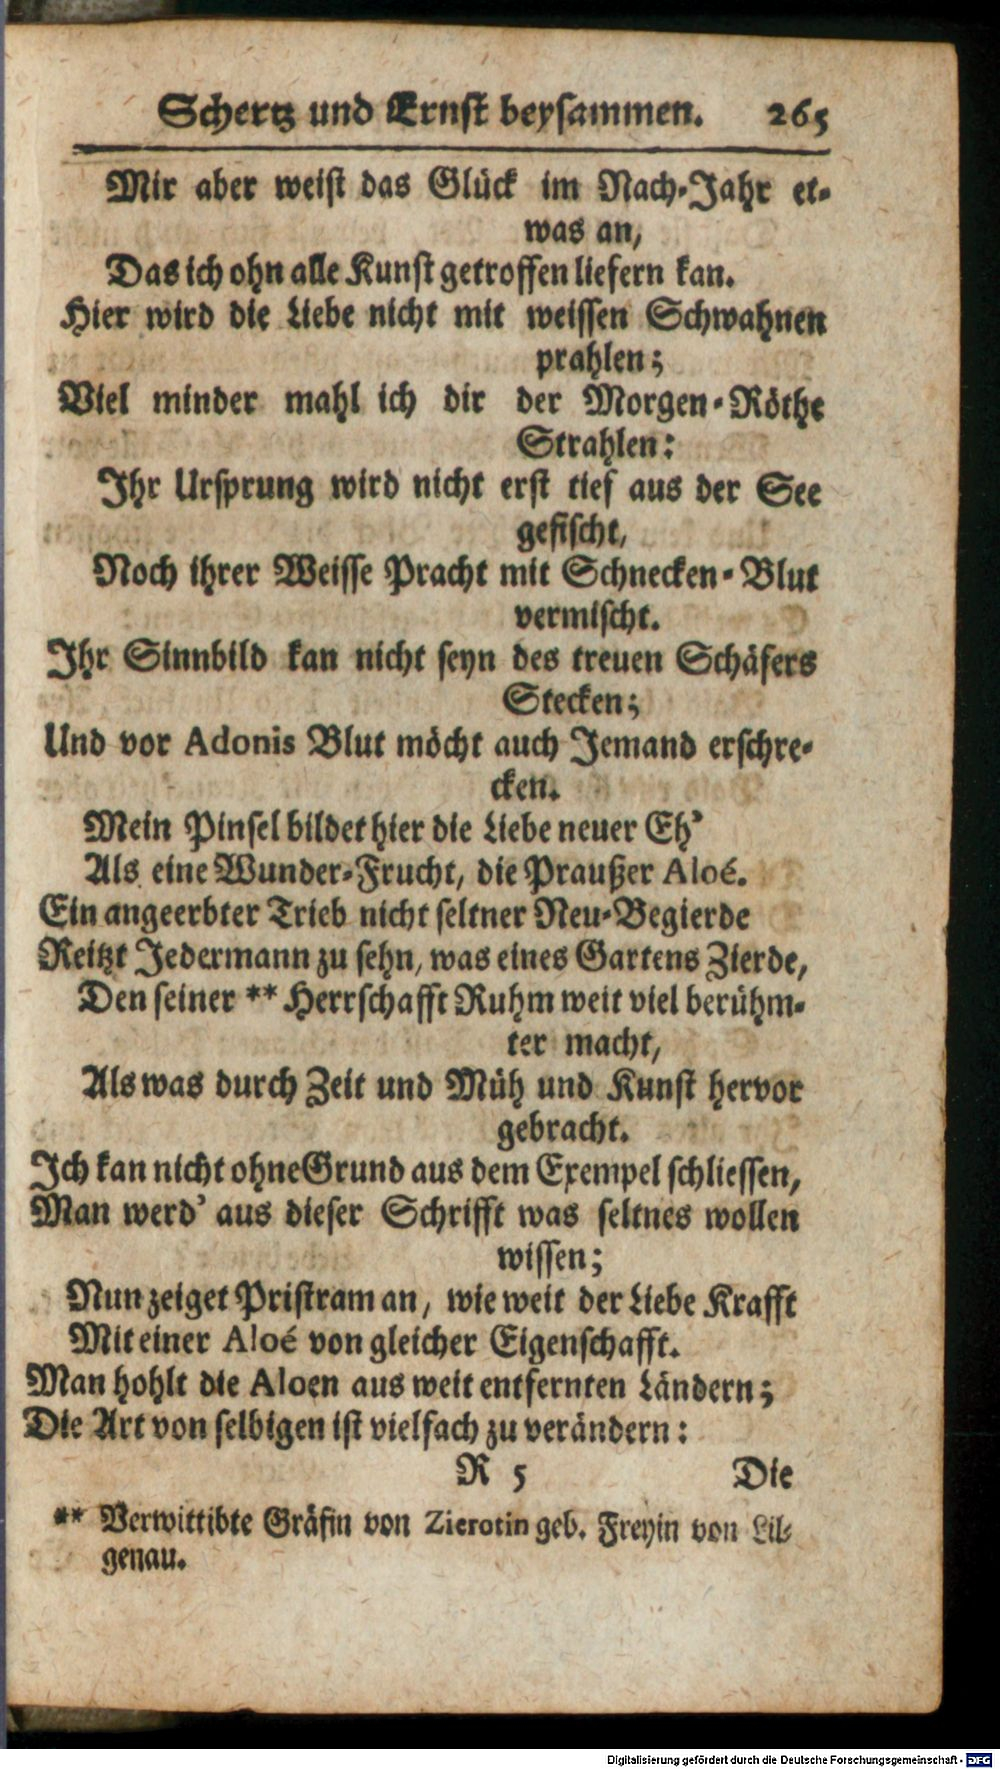 Schertz und Ernst beysammen. 265
Mir aber weist das Glück im Nach-Jahr et-
was an,
Das ich ohn alle Kunst getroffen liefern kan.
Hier wird die Liebe nicht mit weissen Schwahnen
prahlen;
Viel minder mahl ich dir der Morgen-Röthe
Strahlen:
Ihr Ursprung wird nicht erst tief aus der See
gefischt,
Noch ihrer Weisse Pracht mit Schnecken-Blut
vermischt.
Ihr Sinnbild kan nicht seyn des treuen Schäfers
Stecken;
Und vor Adonis Blut möcht auch Jemand erschre-
cken.
Mein Pinsel bildet hier die Liebe neuer Eh'
Als eine Wunder-Frucht, die Praußer Aloé.
Ein angeerbter Trieb nicht seltner Neu-Begierde
Reitzt Jedermann zu sehn, was eines Gartens Zierde,
Den seiner ** Herrschafft Ruhm weit viel berühm-
ter macht,
Als was durch Zeit und Müh und Kunst hervor
gebracht.
Ich kan nicht ohne Grund aus dem Exempel schliessen,
Man werd' aus dieser Schrifft was seltnes wollen
wissen;
Nun zeiget Pristram an, wie weit der Liebe Krafft
Mit einer Aloé von gleicher Eigenschafft.
Man hohlt die Aloen aus weit entfernten Ländern;
Die Art von selbigen ist vielfach zu verändern:
R 5 Die
** Verwittibte Gräfin von Zierotin geb. Freyin von Lil-
genau.
Digitalisierung gefördert durch die Deutsche Forschungsgemeinschaft - DFG